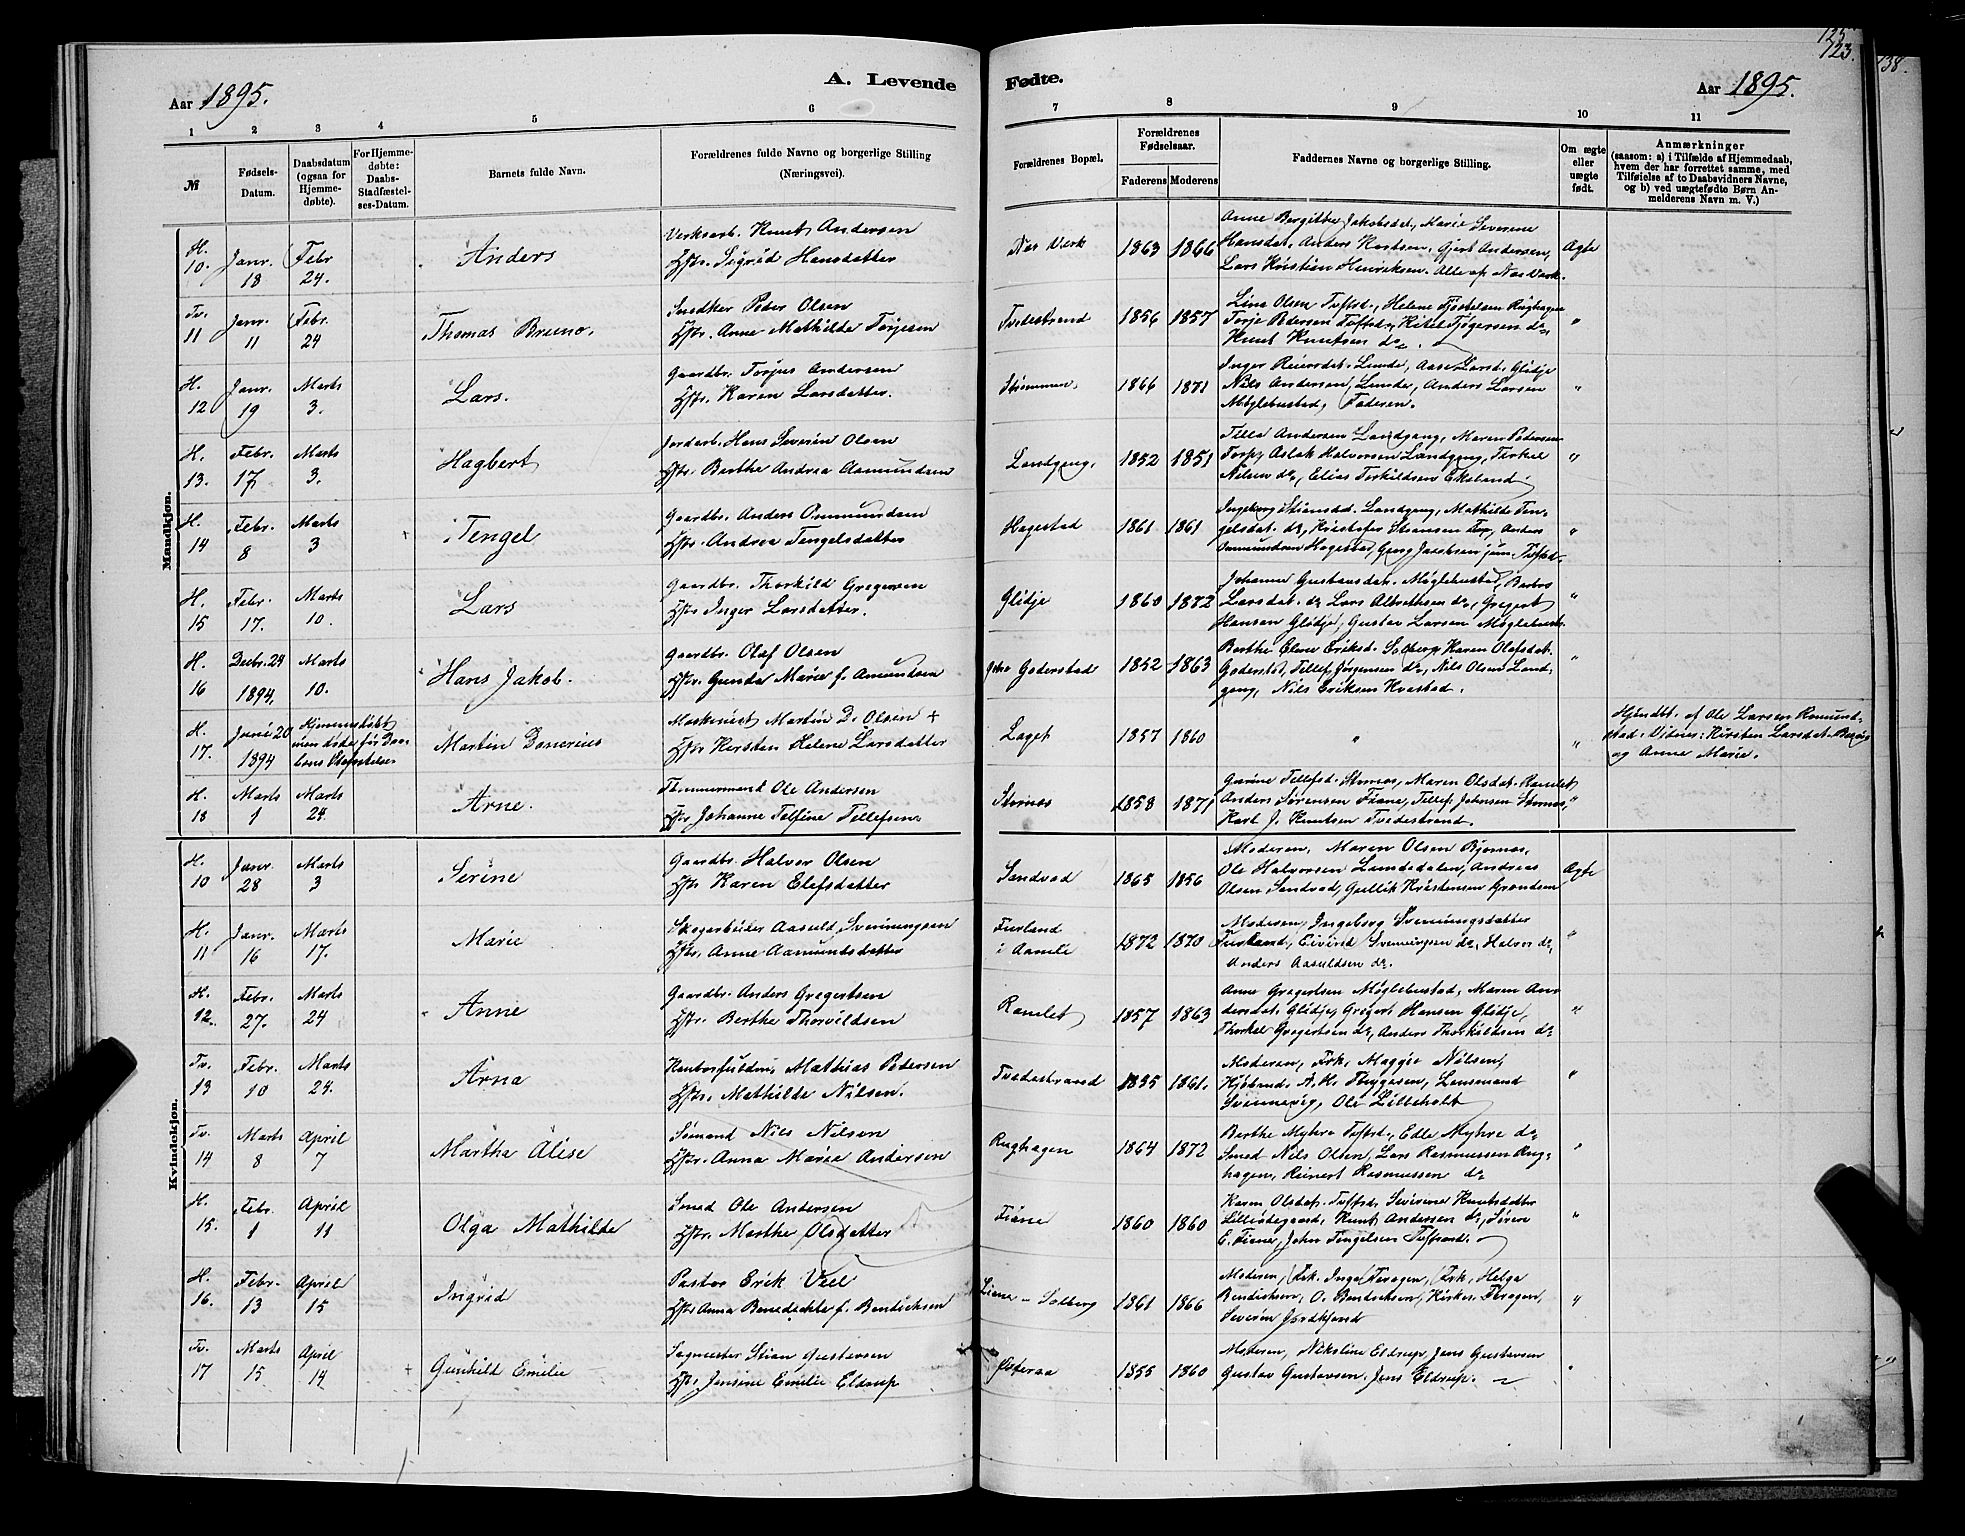 125
123.
138.
A. Levende Fødte.
Aar 1895.
Aar 1895.
1 2 3 4 5 6 7 8 9 10 11
№
Fødsels-Datum.
Daabsdatum (ogsaa for Hjemme-døbte).
For Hjemme-døbte: Daabs-Stadfæstel-ses-Datum.
Barnets fulde Navn.
Forældrenes fulde Navne og borgerlige Stilling (Næringsvei).
Forældrenes Bopæl.
Forældrenes Fødselsaar.
Faderens Moderens
Faddernes Navne og borgerlige Stilling.
Om ægte eller uægte født.
Anmærkninger
(saasom: a) i Tilfælde af Hjemmedaab,
hvem der har forrettet samme, med
Tilføielse af to Daabsvidners Navne,
og b) ved uægtefødte Børn An-
melderens Navn m. V.)
Mandkjøn.
H. 10. Janr. 18 Febr 24. Anders
Verksarb. Knut Andersen
Hstr. Sigrid Hansdatter
Næs Værk 1863 1866
Anne Bergithe Jakobsdat., Marie Severine
Hansdat., Anders Knutsen, Gjert Andersen,
Lars Kristian Henriksen. Alle af Næs Værk.
Ægte
Tv. 11 Janr. 11 Febr. 24 Thomas Bruno.
Snedker Peder Olsen
Hstr. Anne Mathilde Terjesen
Tvedestrand 1856 1857
Lina Olsen Tvestd., Helene Kjostelsen Rughagen
Terje Pedersen Tvestd.
Knut Knutsen do.
"
H. 12 Janr. 19 Marts 3. Lars.
Gaardbr. Torjus Andersen
Hstr. Karen Larsdatter.
Strømmen, 1866 1871
Inger Reiersdat. Lunde, Aase Larsd. Glidje
Nils Andersen Lunde, Anders Larsen
Møglebustad, Faderen.
"
H. 13. Febr. 17 Marts 3. Hagbert
Jordarb. Hans Severin Olsen
Hstr. Berthe Andrea Aamundsen
Landgang. 1852 1851
Tilla Andersen Landgang, Maren Pedersen
Torp, Aslak Halvorsen Landgang, Terkel
Nilsen do, Elias Terkildsen Eksland
"
H. 14 Febr. 8 Marts 3 Tengel
Gaardbr. Anders Ommundsen
Hstr. Andrea Tengelsdatter
Hagestad 1861 1861
Ingeborg Stiansd. Landgang, Mathilde Ten-
gelsdat. do, Kristofer Stiansen Torp, Anders
Ommundsen Hagestad, Georg Jacobsen jun. Tvested.
"
H. 15 Febr. 17. Marts 10. Lars
Gaardbr. Thorkild Gregersen
Hstr. Inger Larsdatter.
Glidje 1860 1872
Johanne Gustavsdat. Møglebustad, Barbro
Larsdat. do, Lars Albrethsen do, Gregert
Hansen Glidje, Gustav Larsen Møglebust.
"
H. 16 Decbr. 24 1894, Marts 10. Hans Jakob.
Gaardbr. Olaf Olsen
Hstr. Gunda Marie f. Amundsen
Goderstad 1852 1863
Berthe Elene Eriksd. Solberg, Karen Olafsdat.
Goderstd, Tellef Jørgensen do, Nils Olsen Land-
gang, Nils Eriksen Kvastad.
"
H. 17. Juni 20 1894 Hjemmedøbt
Martin Donerius
Maskinist Martin D. Olsen +
Hstr Kirsten Helene Larsdatter
Laget 1857 1860
"
"
Hjemdbt. af Ole Larsen Romund-
stad. Vidner: Kirsten Larsdat. Berg
og Anne Marie.
H. 18 Marts 1 Marts 24. Arne.
Tømmermand Ole Andersen
Hstr Johanne Telfine Tellefsen
Stornæs 1858 1871
Gurine Tellefsd. Stornæs, Maren Olsdat. Ramlet
Anders Sørensen Fiane, Tellef Johnsen Stornæs,
Karl J. Knutsen Tvedestrand.
"
Kvindekjøn.
H. 10 Janr. 28 Marts 3 Serine
Gaardbr. Halvor Olsen
Hstr Karen Elefsdatter
Sandvad 1865 1856
Moderen, Maren Olsen Bjornæs,
Ole Halvorsen Landsdalen, Andreas
Olsen Sandvad, Gullik Kristensen Grændsen
Ægte
H. 11 Janr. 16 Marts 17. Marie
Skogarbeider Aasuld Svenningsen
Hstr. Anne Aamundsdatter
Furland i Aamli 1872 1870
Moderen, Ingeborg Svenningsdatter
Furland, Eivind Svenningsen do, Halvor do
Anders Aasuldsen do.
"
H. 12. Febr. 27. Marts 24 Anne
Gaardbr. Anders Gregertsen
Hstr. Berthe Thorvildsen
Ramlet 1857 1863
Anne Gregertsen Møglebustad, Maren An-
dersdat. Glidje, Gregert Hansen Glidje,
Thorkel Gregertsen do, Anders Thorkildsen do
"
Tv. 13 Febr. 10 Marts 24. Arna
Kontorfuldm. Mathias Pedersen
Hstr. Mathilde Nilsen.
Tvedestrand 1835 1861.
Moderen, Frk. Maggie Nilsen,
Kjøbmd. A. M. Thygesen, Lensmand
Svennevig, Ole Lilleholt
"
Tv. 14 Marts 8 April 7 Martha Alise
Sømand Nils Nilsen
Hstr. Anna Marie Andersen
Rughagen 1864 1872
Berthe Myhre Tvestd., Edle Myhre do
Smed Nils Olsen, Lars Rasmussen Rug-
hagen, Reinert Rasmussen do
"
H. 15. Febr. 1 April 11 Olga Mathilde
Smed Ole Andersen
Hstr. Marthe Olsdatter
Fiane 1860 1860
Karen Olsdat. Tvestd., Severine Knutsdatter
Lilleødegaard, Knut Andersen do, Søren
E. Fiane, John Tengelsen Tvstrand.
"
H. 16. Febr. 13 April 15 Ingrid
Pastor Erik Vell
Hstr Anna Benedichte f. Bendichsen
Liene - Solberg 1861 1866
Moderen, Frk. Inga Faragen, Frk. Helga
Bendichsen, O. Bendichsen, Kirkes. Faragen,
Severin Jordkjend
"
Tv. 17 Marts 15 April 14 Gunhild Emilie
Sagmester Stian Gustavsen
Hstr. Jensine Emilie Eldrup
Østeraa 1855 1860
Moderen, Nikoline Eldrup, Jens Gustavsen
Gustav Gustavsen, Jens Eldrup.
"